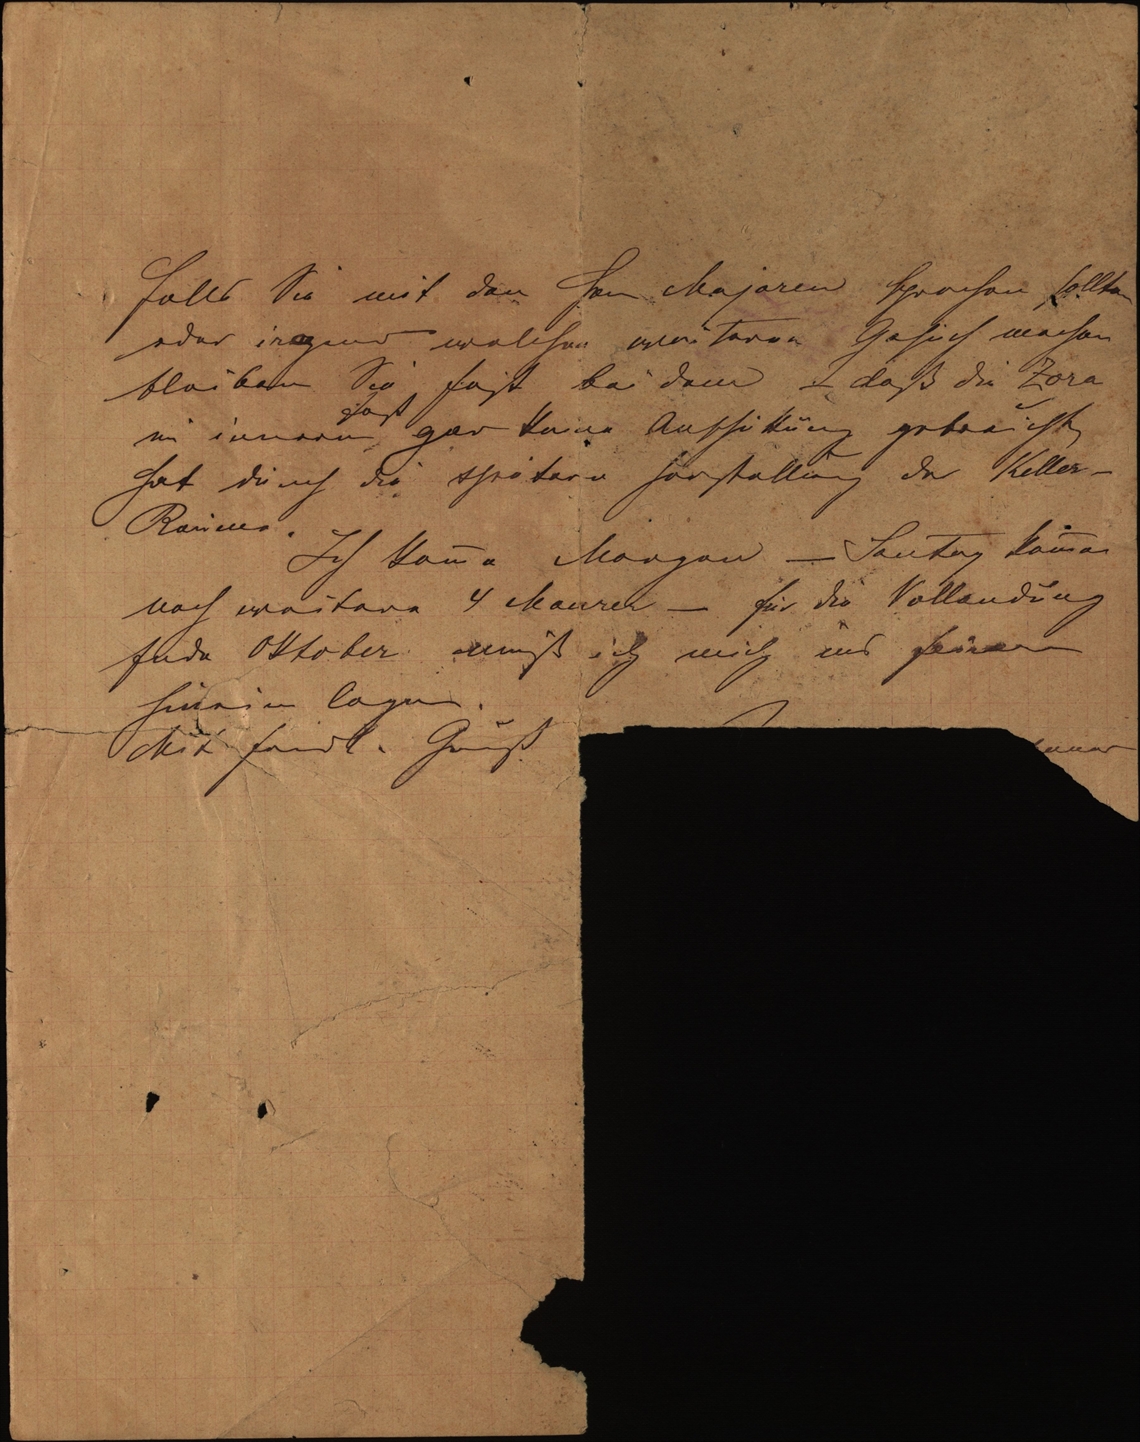 Falls Sie mit den Herrn Majoren sprechen sollten
oder irgend welchen weiteren Gesuch machen
bleiben Sie fest bei dem – daß die Zora
im innern fast gar keine Aufschüttung gebraucht
hat durch die spätere Herstellung der Keller-
Räume.
Ich komme Morgen – Sontag kommen
noch weitere 4 Maurer – für die Vollendung
Ende Oktober muß ich mich ins
hinein legen.
Mit frndl. Gruß